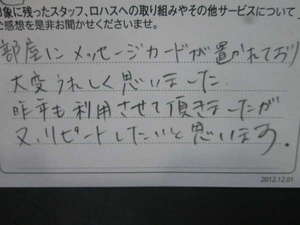 印象に残ったスタッフ、ロハスへの取り組みやその他サービスについて
ご感想を是非お聞かせくださいませ。
部屋にメッセージカードが置かれており
大変うれしく思いました。
昨年も利用させて頂きましたが
又、リピートしたいと思います。
2012.12.01